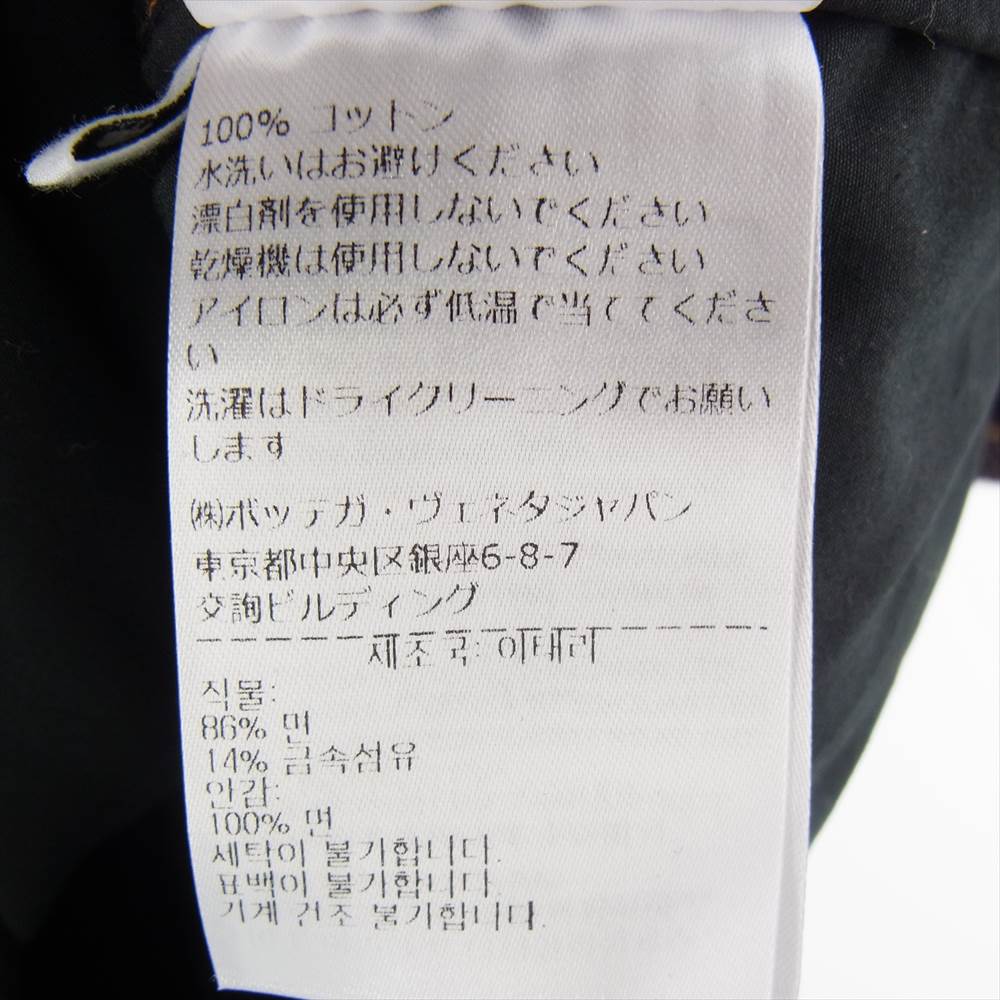 100% コットン
水洗いはお避けください
漂白剤を使用しないでください
乾燥機は使用しないでください
アイロンは必ず低温で当ててくださ
い
洗濯はドライクリーニングでお願い
します
㈱ボッテガ・ヴェネタジャパン
東京都中央区銀座6-8-7
交詢ビルディング
제조국: 이태리
직물:
86% 면
14% 금속섬유
안감:
100% 면
세탁이 불가합니다.
표백이 불가합니다.
기계 건조 불가합니다.